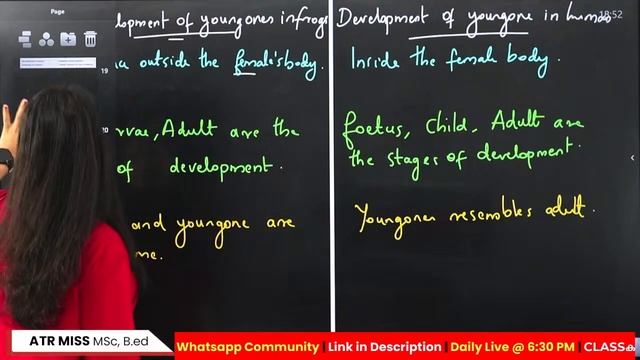 Page
18:52
lopment of youngones in frogs
outside the female's body.
rvae, Adult are the
of development.
and youngone are
me.
Development of youngone in humans
Inside the female body.
foetus, child, Adult are
the stages of development.
Youngones resembles adult.
19
20
ATR MISS MSc, B.ed
Whatsapp Community | Link in Description | Daily Live @ 6:30 PM | CLASS